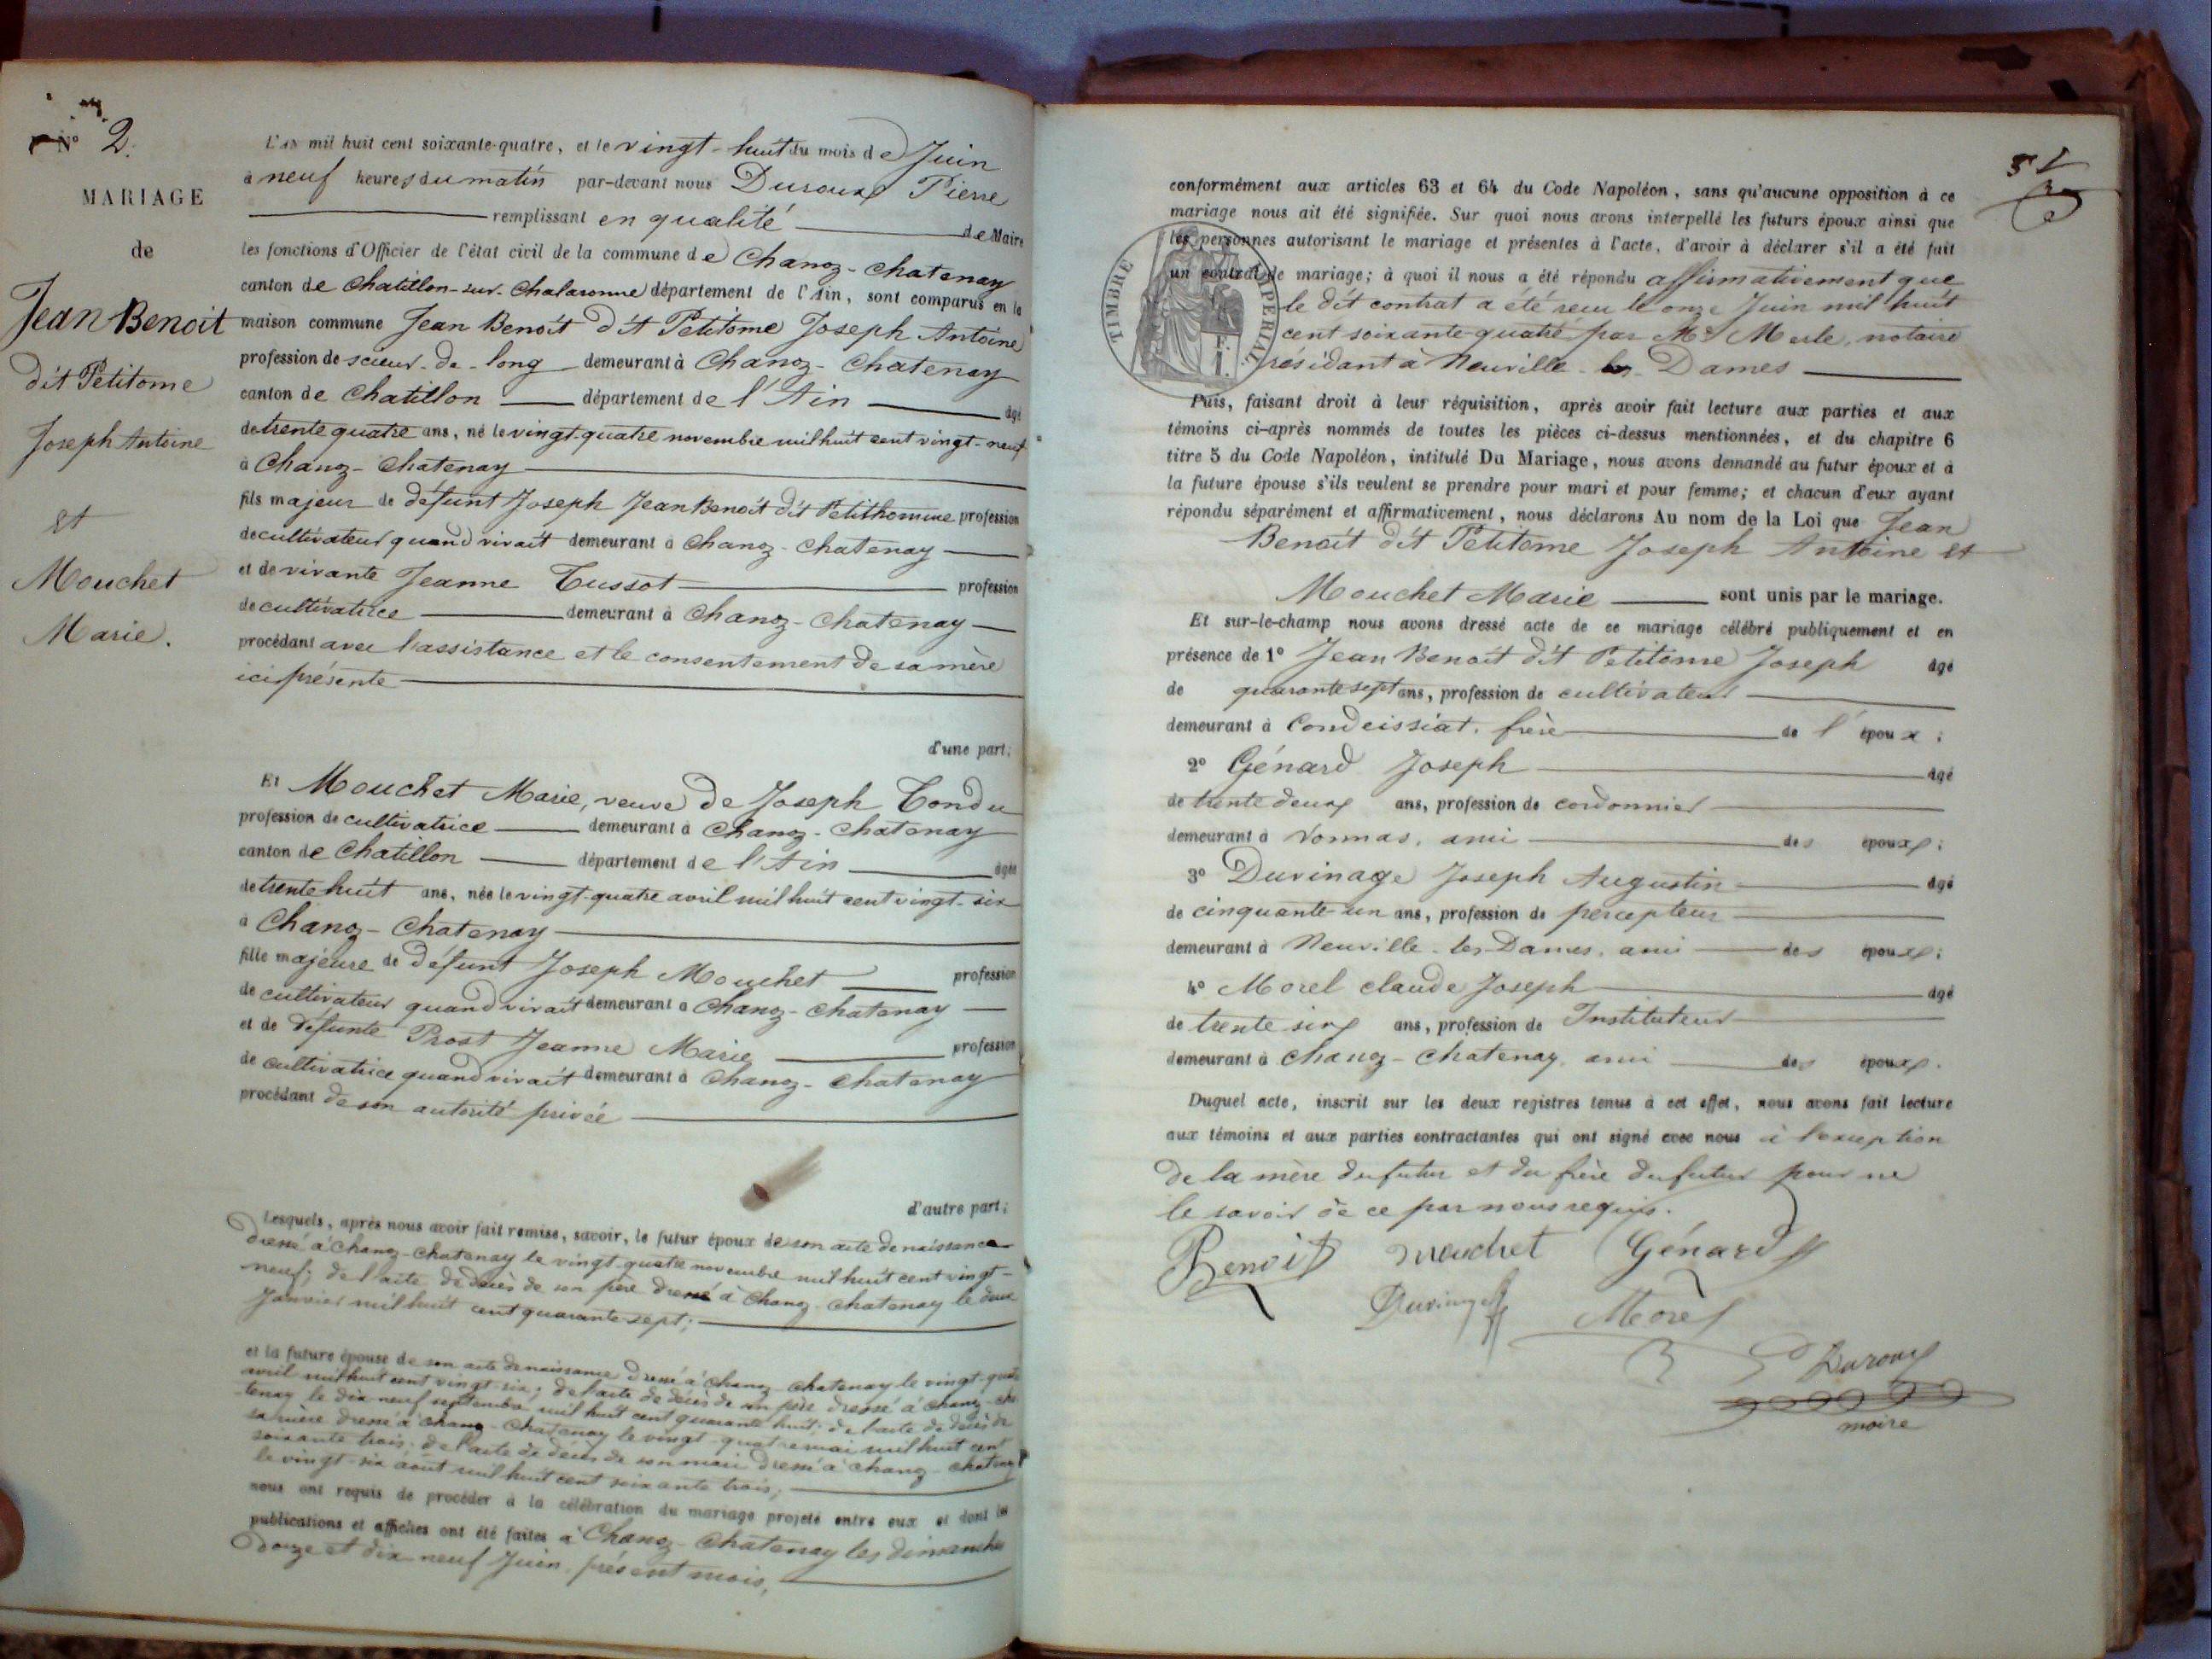 N° 2.
MARIAGE
de
Jean Benoit
dit Petitome
Joseph Antoine
et
Mouchet
Marie.
L'AN mil huit cent soixante-quatre, et le vingt-huit du mois de Juin
à neuf heures du matin par-devant nous Duroux Pierre
remplissant en qualité de Maire
les fonctions d'Officier de l'état civil de la commune de Chanoz-Chatenay
canton de Chatillon-sur-Chalaronne département de l'Ain, sont comparus en la
maison commune Jean Benoît dit Petitome Joseph Antoine
profession de scieur-de-long demeurant à Chanoz-Chatenay
canton de Chatillon département de l'Ain âgé
de trente quatre ans, né le vingt-quatre novembre mil huit cent vingt-neuf
à Chanoz-Chatenay
fils majeur de défunt Joseph Jean Benoît dit Petithomme profession
de cultivateur quand vivait demeurant à Chanoz-Chatenay
et de vivante Jeanne Tussot profession
de cultivatrice demeurant à Chanoz-Chatenay
procédant avec l'assistance et le consentement de sa mère
ici présente
d'une part;
Et Mouchet Marie, veuve de Joseph Tondu
profession de cultivatrice demeurant à Chanoz-Chatenay
canton de Chatillon département de l'Ain âgée
de trente huit ans, née le vingt-quatre avril mil huit cent vingt-six
à Chanoz-Chatenay
fille majeure de défunt Joseph Mouchet profession
de cultivateur quand vivait demeurant à Chanoz-Chatenay
et de défunte Prost Jeanne Marie profession
de cultivatrice quand vivait demeurant à Chanoz-Chatenay
procédant de son autorité privée
d'autre part;
Lesquels, après nous avoir fait remise, savoir, le futur époux de son acte de naissance
dressé à Chanoz-Chatenay le vingt-quatre novembre mil huit cent vingt-
neuf; de l'acte de décès de son père dressé à Chanoz-Chatenay le deux
Janvier mil huit cent quarante sept;
et la future épouse de son acte de naissance dressé à Chanoz-Chatenay le vingt-quatre
avril mil huit cent vingt-six; de l'acte de décès de son père dressé à Chanoz-Cha-
tenay le dix neuf septembre mil huit cent quarante huit; de l'acte de décès de
sa mère dressé à Chanoz-Chatenay le vingt-quatre mai mil huit cent
soixante trois; de l'acte de décès de son mari dressé à Chanoz-Chatenay
le vingt-six août mil huit cent soixante trois;
nous ont requis de procéder à la célébration du mariage projeté entre eux et dont les
publications et affiches ont été faites à Chanoz-Chatenay les dimanches
douze et dix neuf Juin, présent mois,
conformément aux articles 63 et 64 du Code Napoléon, sans qu'aucune opposition à ce
mariage nous ait été signifiée. Sur quoi nous avons interpellé les futurs époux ainsi que
les personnes autorisant le mariage et présentes à l'acte, d'avoir à déclarer s'il a été fait
un contrat de mariage; à quoi il nous a été répondu affirmativement que
le dit contrat a été reçu le onze Juin mil huit
cent soixante-quatre par Me Merle, notaire
résidant à Neuville-les-Dames
TIMBRE IMPERIAL
Puis, faisant droit à leur réquisition, après avoir fait lecture aux parties et aux
témoins ci-après nommés de toutes les pièces ci-dessus mentionnées, et du chapitre 6
titre 5 du Code Napoléon, intitulé Du Mariage, nous avons demandé au futur époux et à
la future épouse s'ils veulent se prendre pour mari et pour femme; et chacun d'eux ayant
répondu séparément et affirmativement, nous déclarons Au nom de la Loi que Jean
Benoît dit Petitome Joseph Antoine et
Mouchet Marie sont unis par le mariage.
Et sur-le-champ nous avons dressé acte de ce mariage célébré publiquement et en
présence de 1° Jean Benoît dit Petitome Joseph âgé
de quarante sept ans, profession de cultivateur
demeurant à Condeissiat, frère de l'époux;
2° Génard Joseph âgé
de trente deux ans, profession de cordonnier
demeurant à Vonnas, ami des époux;
3° Duvinage Joseph Augustin âgé
de cinquante-un ans, profession de percepteur
demeurant à Neuville-les-Dames, ami des époux;
4° Morel claude Joseph âgé
de trente six ans, profession de Instituteur
demeurant à Chanoz-Chatenay, ami des époux.
Duquel acte, inscrit sur les deux registres tenus à cet effet, nous avons fait lecture
aux témoins et aux parties contractantes qui ont signé avec nous à l'exception
de la mère du futur et du frère du futur pour ne
le savoir de ce par nous requis.
Benoit Mouchet Génard
Duvinage Morel
Duroux
maire